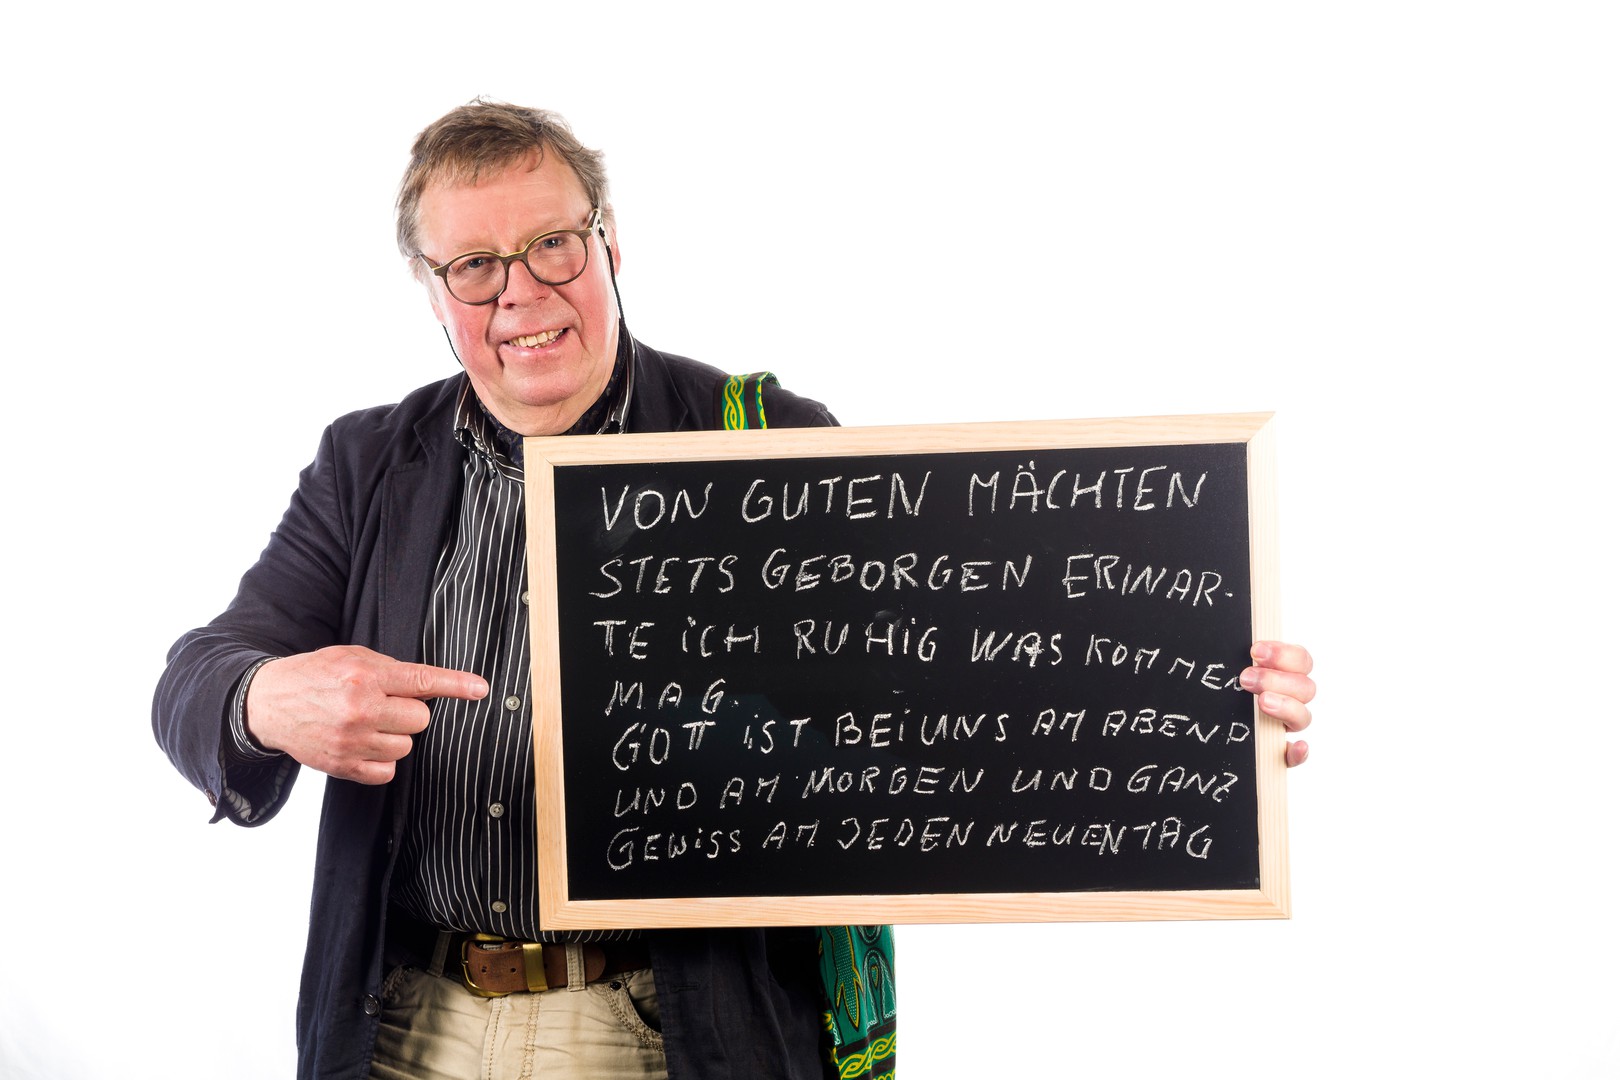 VON GUTEN MÄCHTEN
STETS GEBORGEN ERWAR-
TE ICH RUHIG WAS KOMMEN
MAG.
GOTT IST BEI UNS AM ABEND
UND AM MORGEN UND GANZ
GEWISS AM JEDEN NEUEN TAG